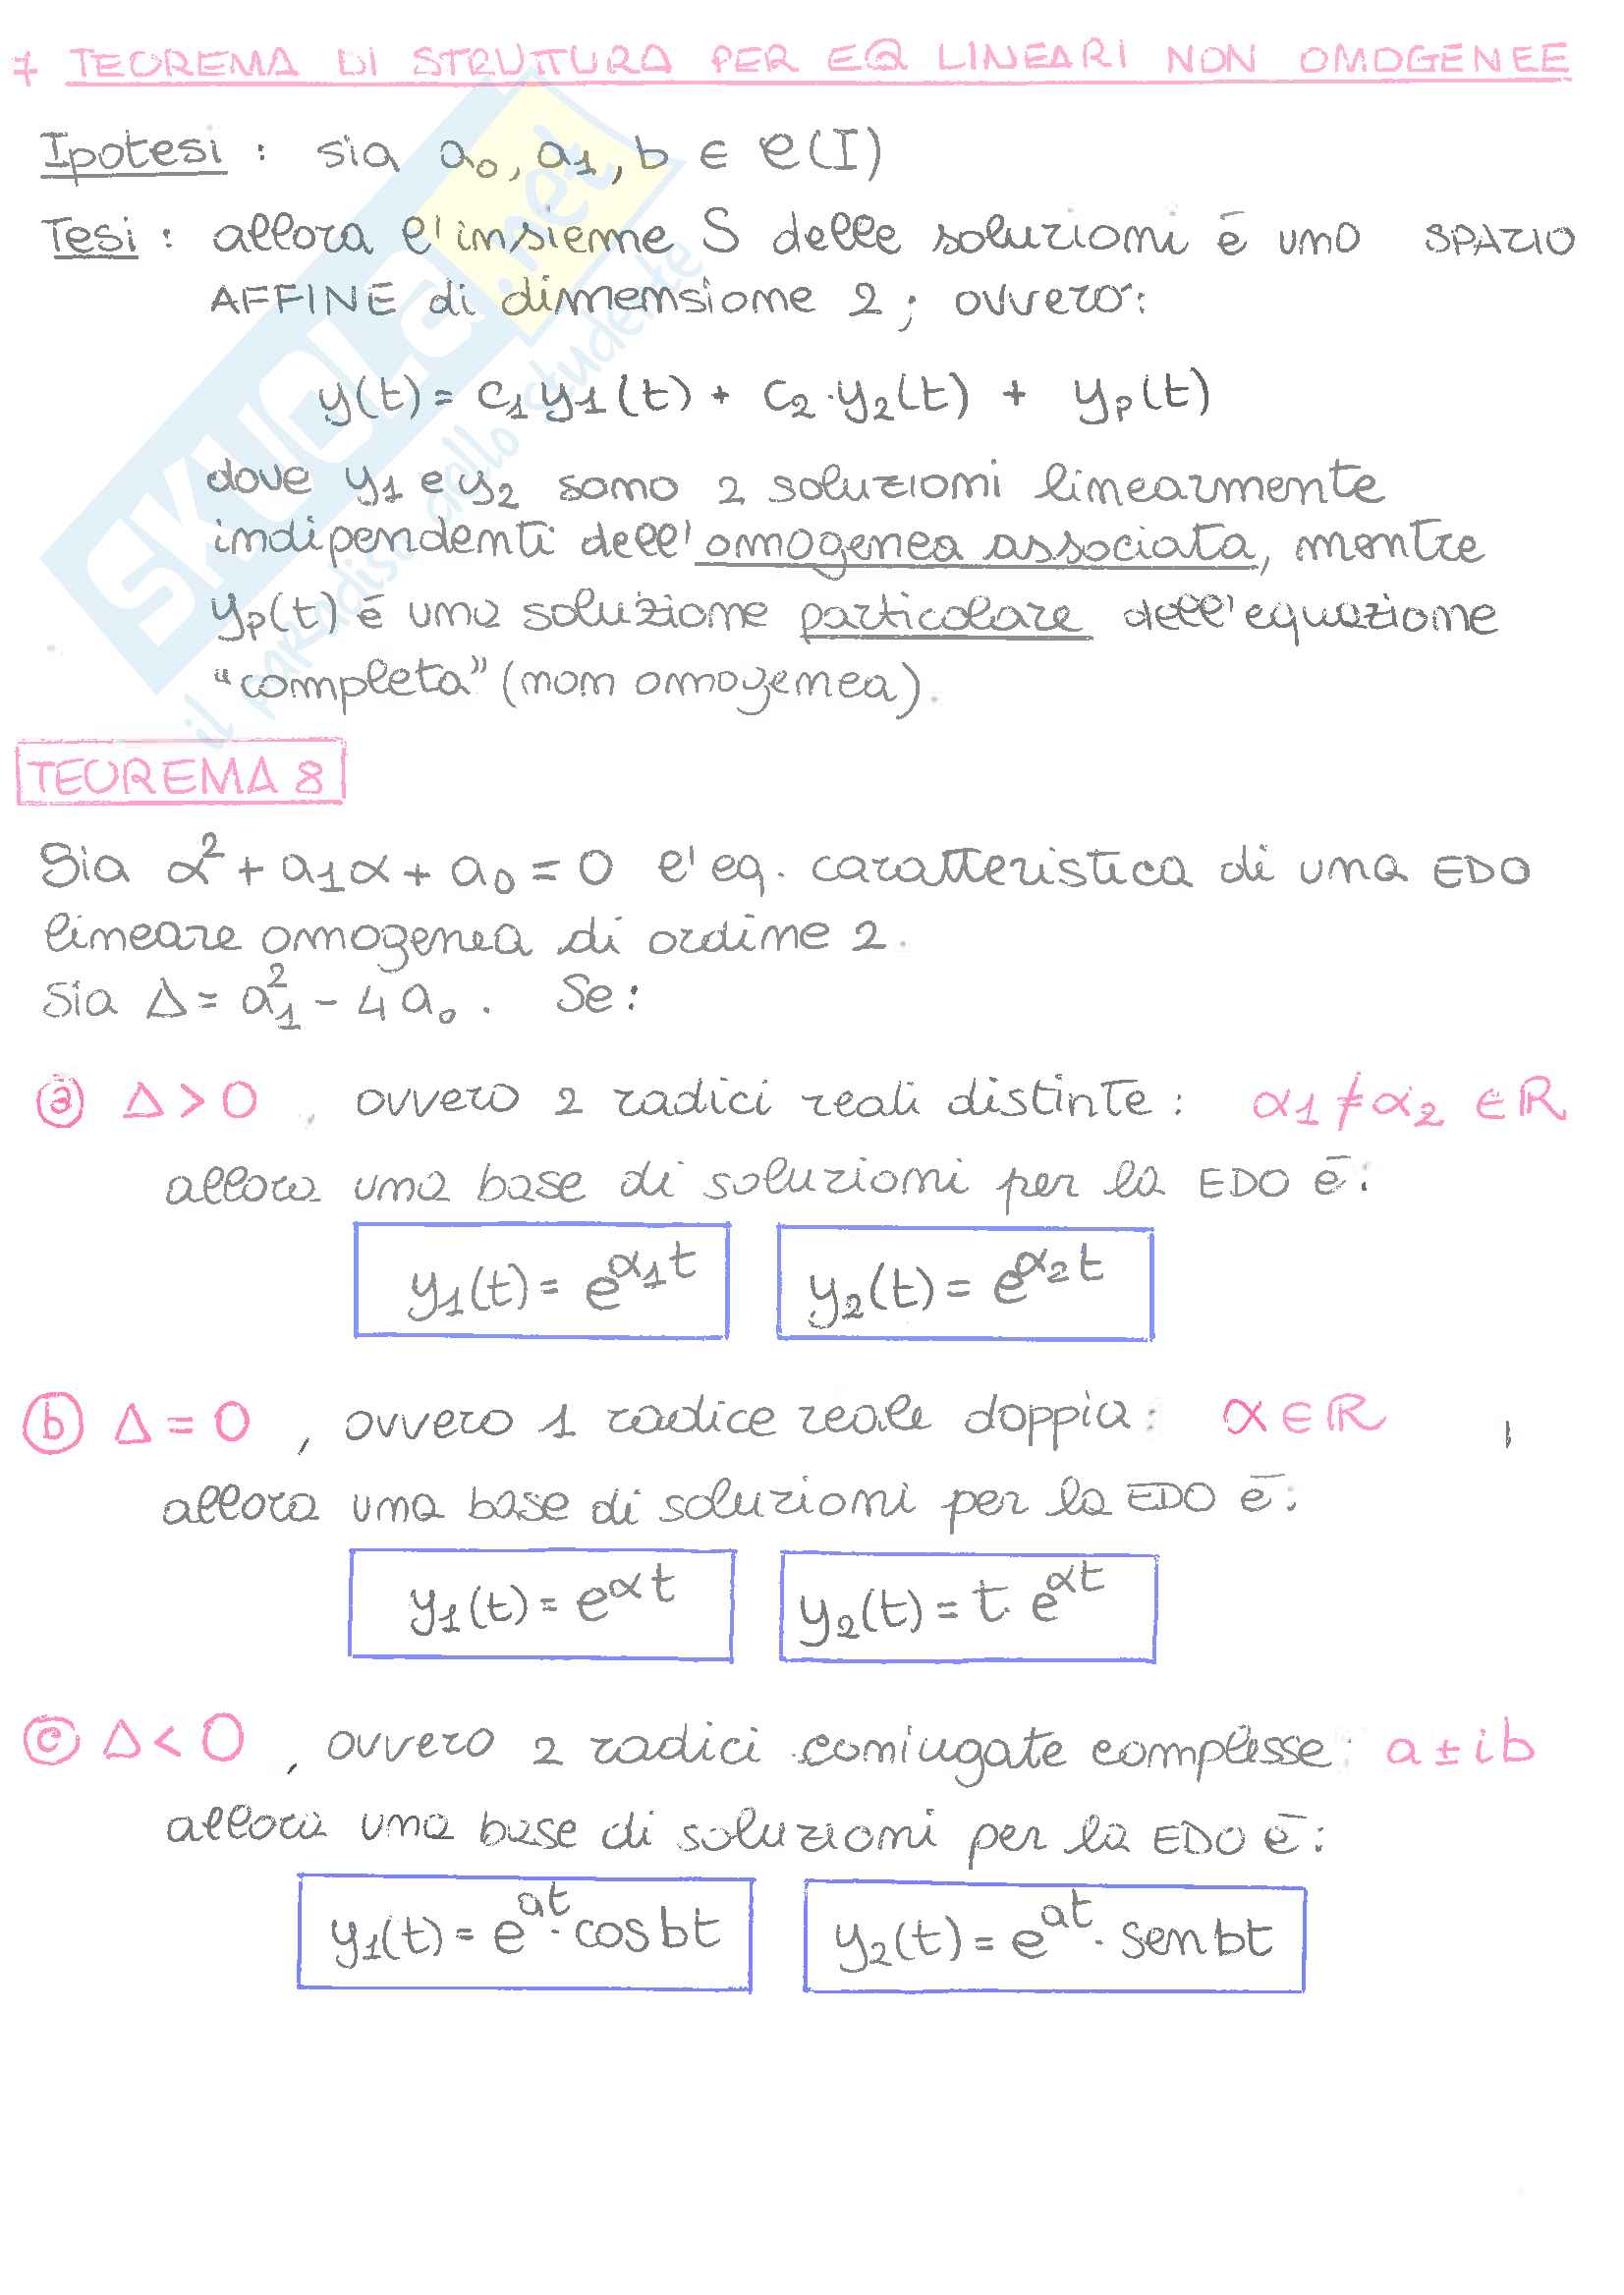 7 TEOREMA DI STRUTTURA PER EQ LINEARI NON OMOGENEE
Ipotesi : sia a₀, a₁, b ∈ C(I)
Tesi : allora l'insieme S delle soluzioni è uno SPAZIO
AFFINE di dimensione 2 ; ovvero:
y(t) = c₁y₁(t) + c₂·y₂(t) + yₚ(t)
dove y₁ e y₂ sono 2 soluzioni linearmente
indipendenti dell'omogenea associata, mentre
yₚ(t) è una soluzione particolare dell'equazione
"completa" (non omogenea).
TEOREMA 8
Sia α² + a₁α + a₀ = 0 l'eq. caratteristica di una EDO
lineare omogenea di ordine 2.
Sia Δ = a₁² - 4a₀. Se:
ⓐ Δ > 0 , ovvero 2 radici reali distinte : α₁ ≠ α₂ ∈ ℝ
allora una base di soluzioni per la EDO è:
y₁(t) = e^α₁t y₂(t) = e^α₂t
ⓑ Δ = 0 , ovvero 1 radice reale doppia : α ∈ ℝ ,
allora una base di soluzioni per la EDO è:
y₁(t) = e^αt y₂(t) = t e^αt
ⓒ Δ < 0 , ovvero 2 radici coniugate complesse : a ± ib
allora una base di soluzioni per la EDO è:
y₁(t) = e^at · cos bt y₂(t) = e^at · sen bt
SKUOLA.net
il paradiso dello studente